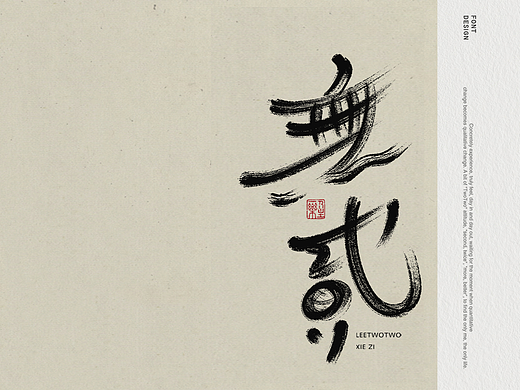 無
貳
LEETWOTWO
XIE ZI
FONT
DESIGN
Concretely experience, truly feel, day in and day out, waiting for the moment when quantitative
change becomes qualitative change. A bit of "TwoTwo" attitude, "second, twice", "more, better", to find the only me, the only life.